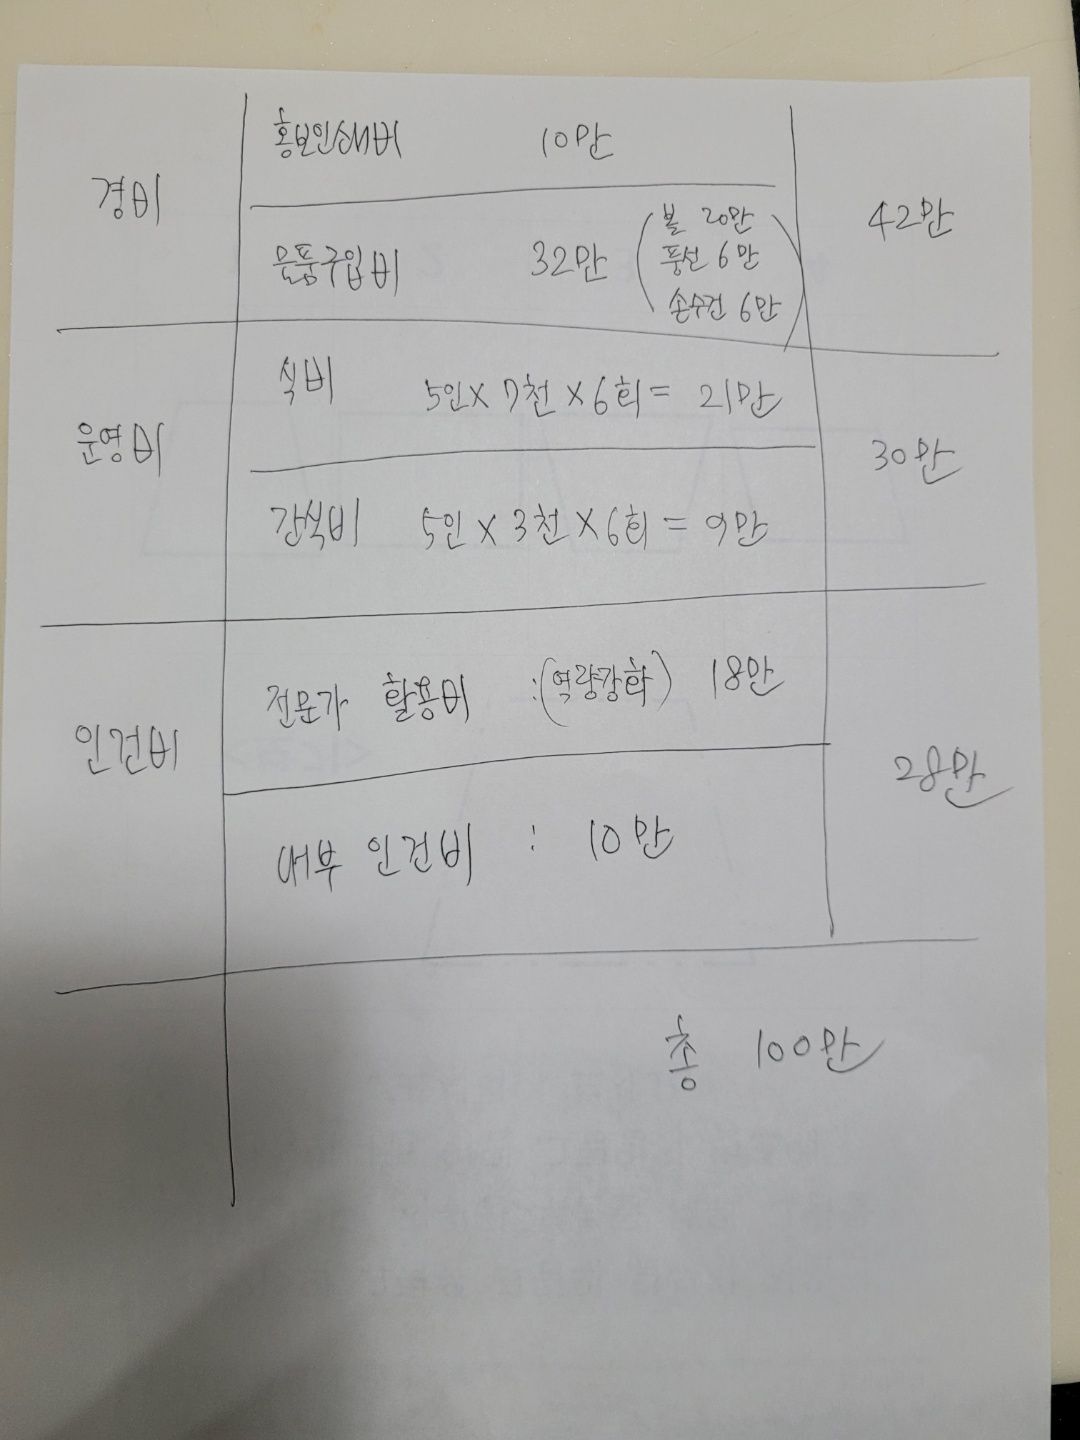 홍보인쇄비 10만
경비
물품구입비 32만
볼 20만
풍선 6만
손수건 6만
42만
식비 5인 × 7천 × 6회 = 21만
운영비
간식비 5인 × 3천 × 6회 = 9만
30만
전문가 활용비 : (역량강화) 18만
인건비
내부 인건비 : 10만
28만
총 100만